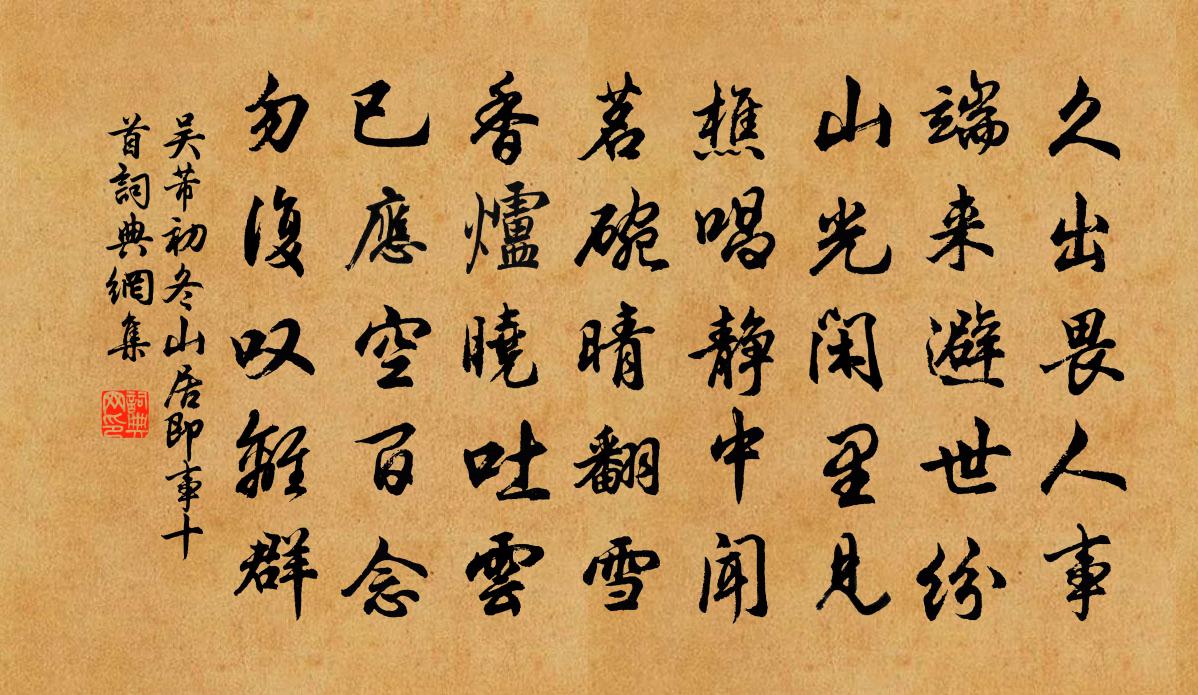 久出畏人事
端来避世紛
山光閑里見
樵唱静中聞
茗碗晴翻雪
香爐曉吐雲
已應空百念
勿復叹離群
吴芾初冬山居即事十
首詞典網集
詞典網印